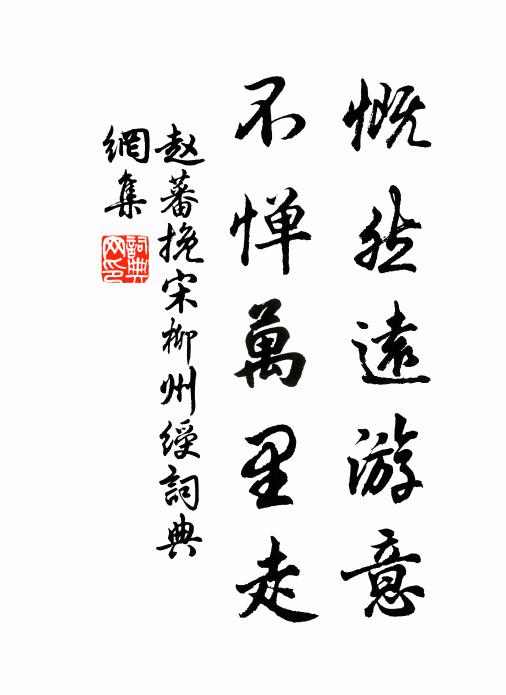 慨然遠游意
不惮萬里走
赵蕃挽宋柳州綬詞典
網集
詞典网印